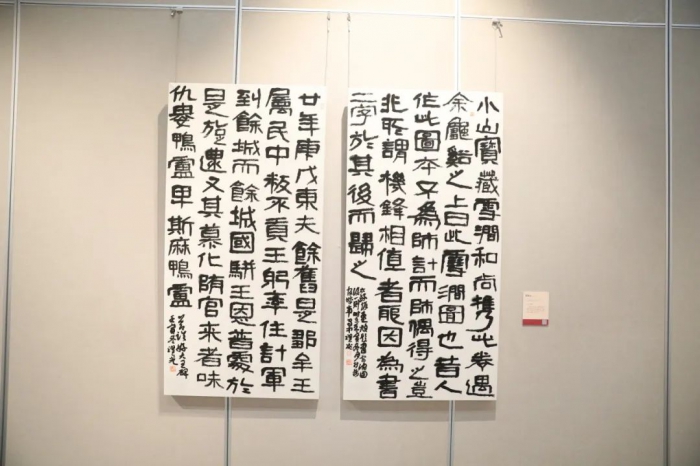 小山寶藏雪澗和尚攜此卷過
余龐谿之上曰此雪澗圖也昔人
作此圖本不為師計而師偶得之豈
非所謂機鋒相值者耶因為書
三字於其後而歸之
廿年庚戌東夫餘舊是鄒牟王
屬民中叛不貢王躬率住計軍
到餘城而餘城國駢王恩普處於
是旋還又其慕化隨官來者味
仇婁鴨盧卑斯麻鴨盧